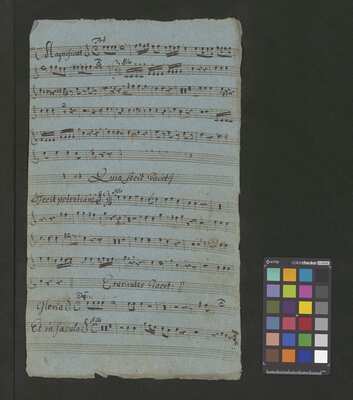 Magnificat
Quia fecit tacet
Fecit potentiam
Esurientes tacet
Gloria
Et in sæcula
colorchecker